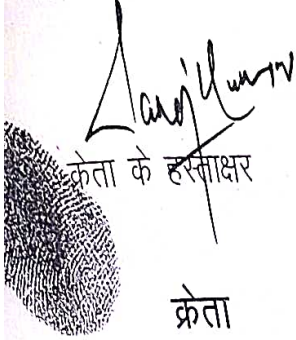 क्रेता के हस्ताक्षर
क्रेता